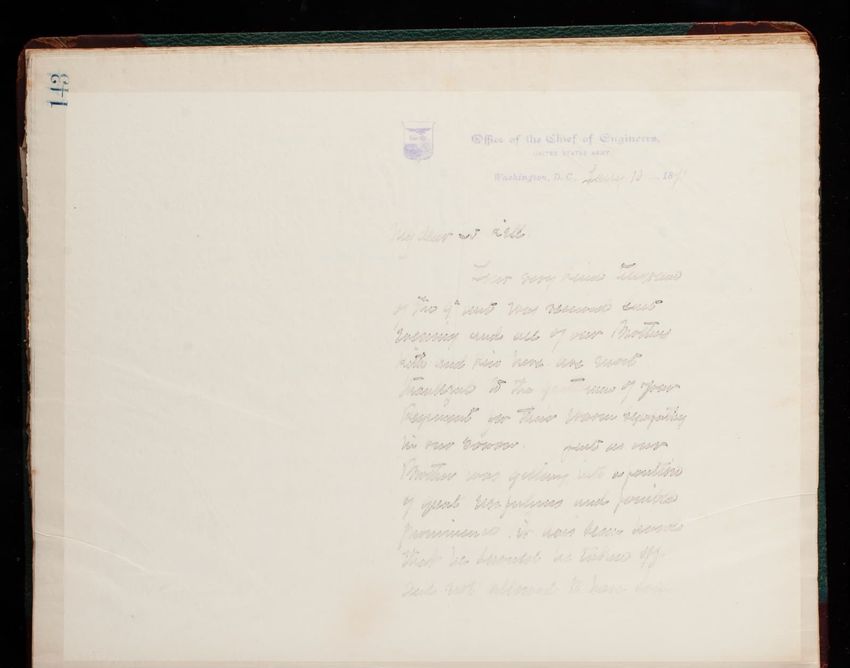 143
Office of the Chief of Engineers,
UNITED STATES ARMY,
Washington, D.C. 10 189
My dear
Your very kind
of the 9th was received
evening and all of our Brothers
kith and kin here are most
thankful to the gentlemen of your
Regiment for their warm sympathy
in our sorrow. Just as our
Brother was getting into a position
of great usefulness and possible
prominence it has been
that he should be taken off
and not allowed to have